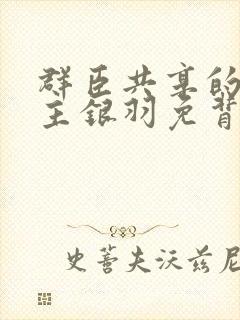 群臣共享的
主银羽免背
史蒈夫沃兹尼